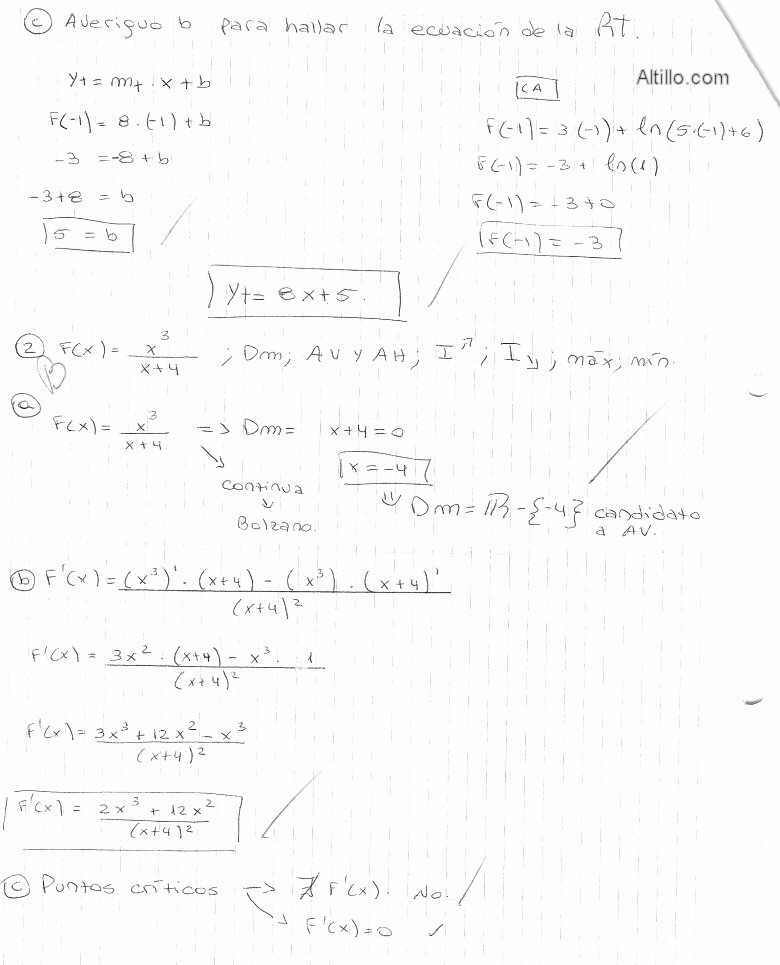 ⓒ Averiguo b para hallar la ecuación de la RT.
Altillo.com
yt = mt . x + b
F(-1) = 8 . (-1) + b
-3 = -8 + b
-3+8 = b
5 = b
CA
F(-1) = 3 (-1) + ln(5.(-1)+6)
F(-1) = -3 + ln(1)
F(-1) = -3 + 0
F(-1) = -3
yt = 8x+5.
② F(x) = x³/(x+4) ; Dm; AV y AH; I↗; I↘; máx; mín.
ⓐ F(x) = x³/(x+4) => Dm= x+4=0
x=-4
Continua
↓
Bolzano.
Dm = R - {-4} candidato
a AV.
ⓑ F'(x) = ((x³)' . (x+4) - (x³) . (x+4)')/(x+4)²
F'(x) = (3x² . (x+4) - x³ . 1)/(x+4)²
F'(x) = (3x³ + 12x² - x³)/(x+4)²
F'(x) = (2x³ + 12x²)/(x+4)²
ⓒ Puntos críticos -> ∄ F'(x). No.
↘ F'(x)=0 ✓